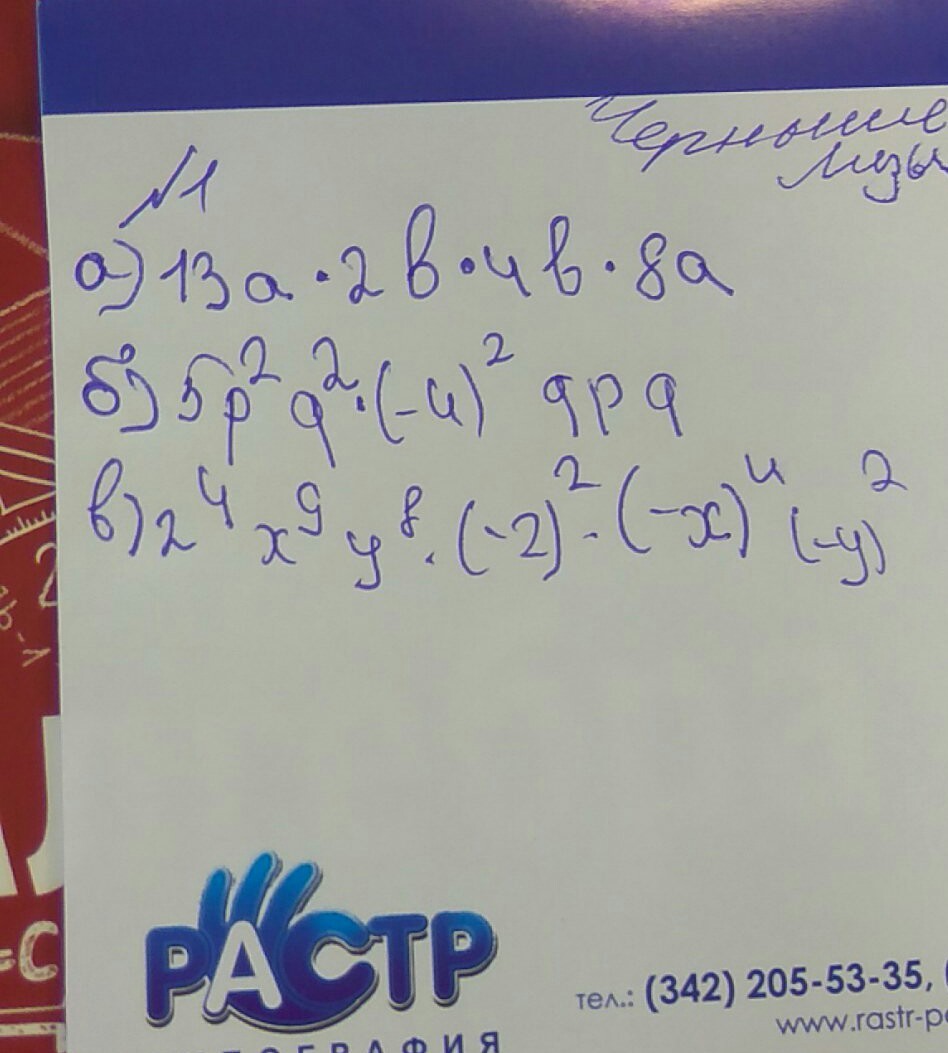 Черныше
Лизы
№1
а) 13а · 2в · 4в · 8а
б) 5p² q² · (-4)² qpq
в) 2⁴ x⁹ y⁸ · (-2)² · (-x)⁴ (-y)²
РАСТР
тел.: (342) 205-53-35,
www.rastr-p